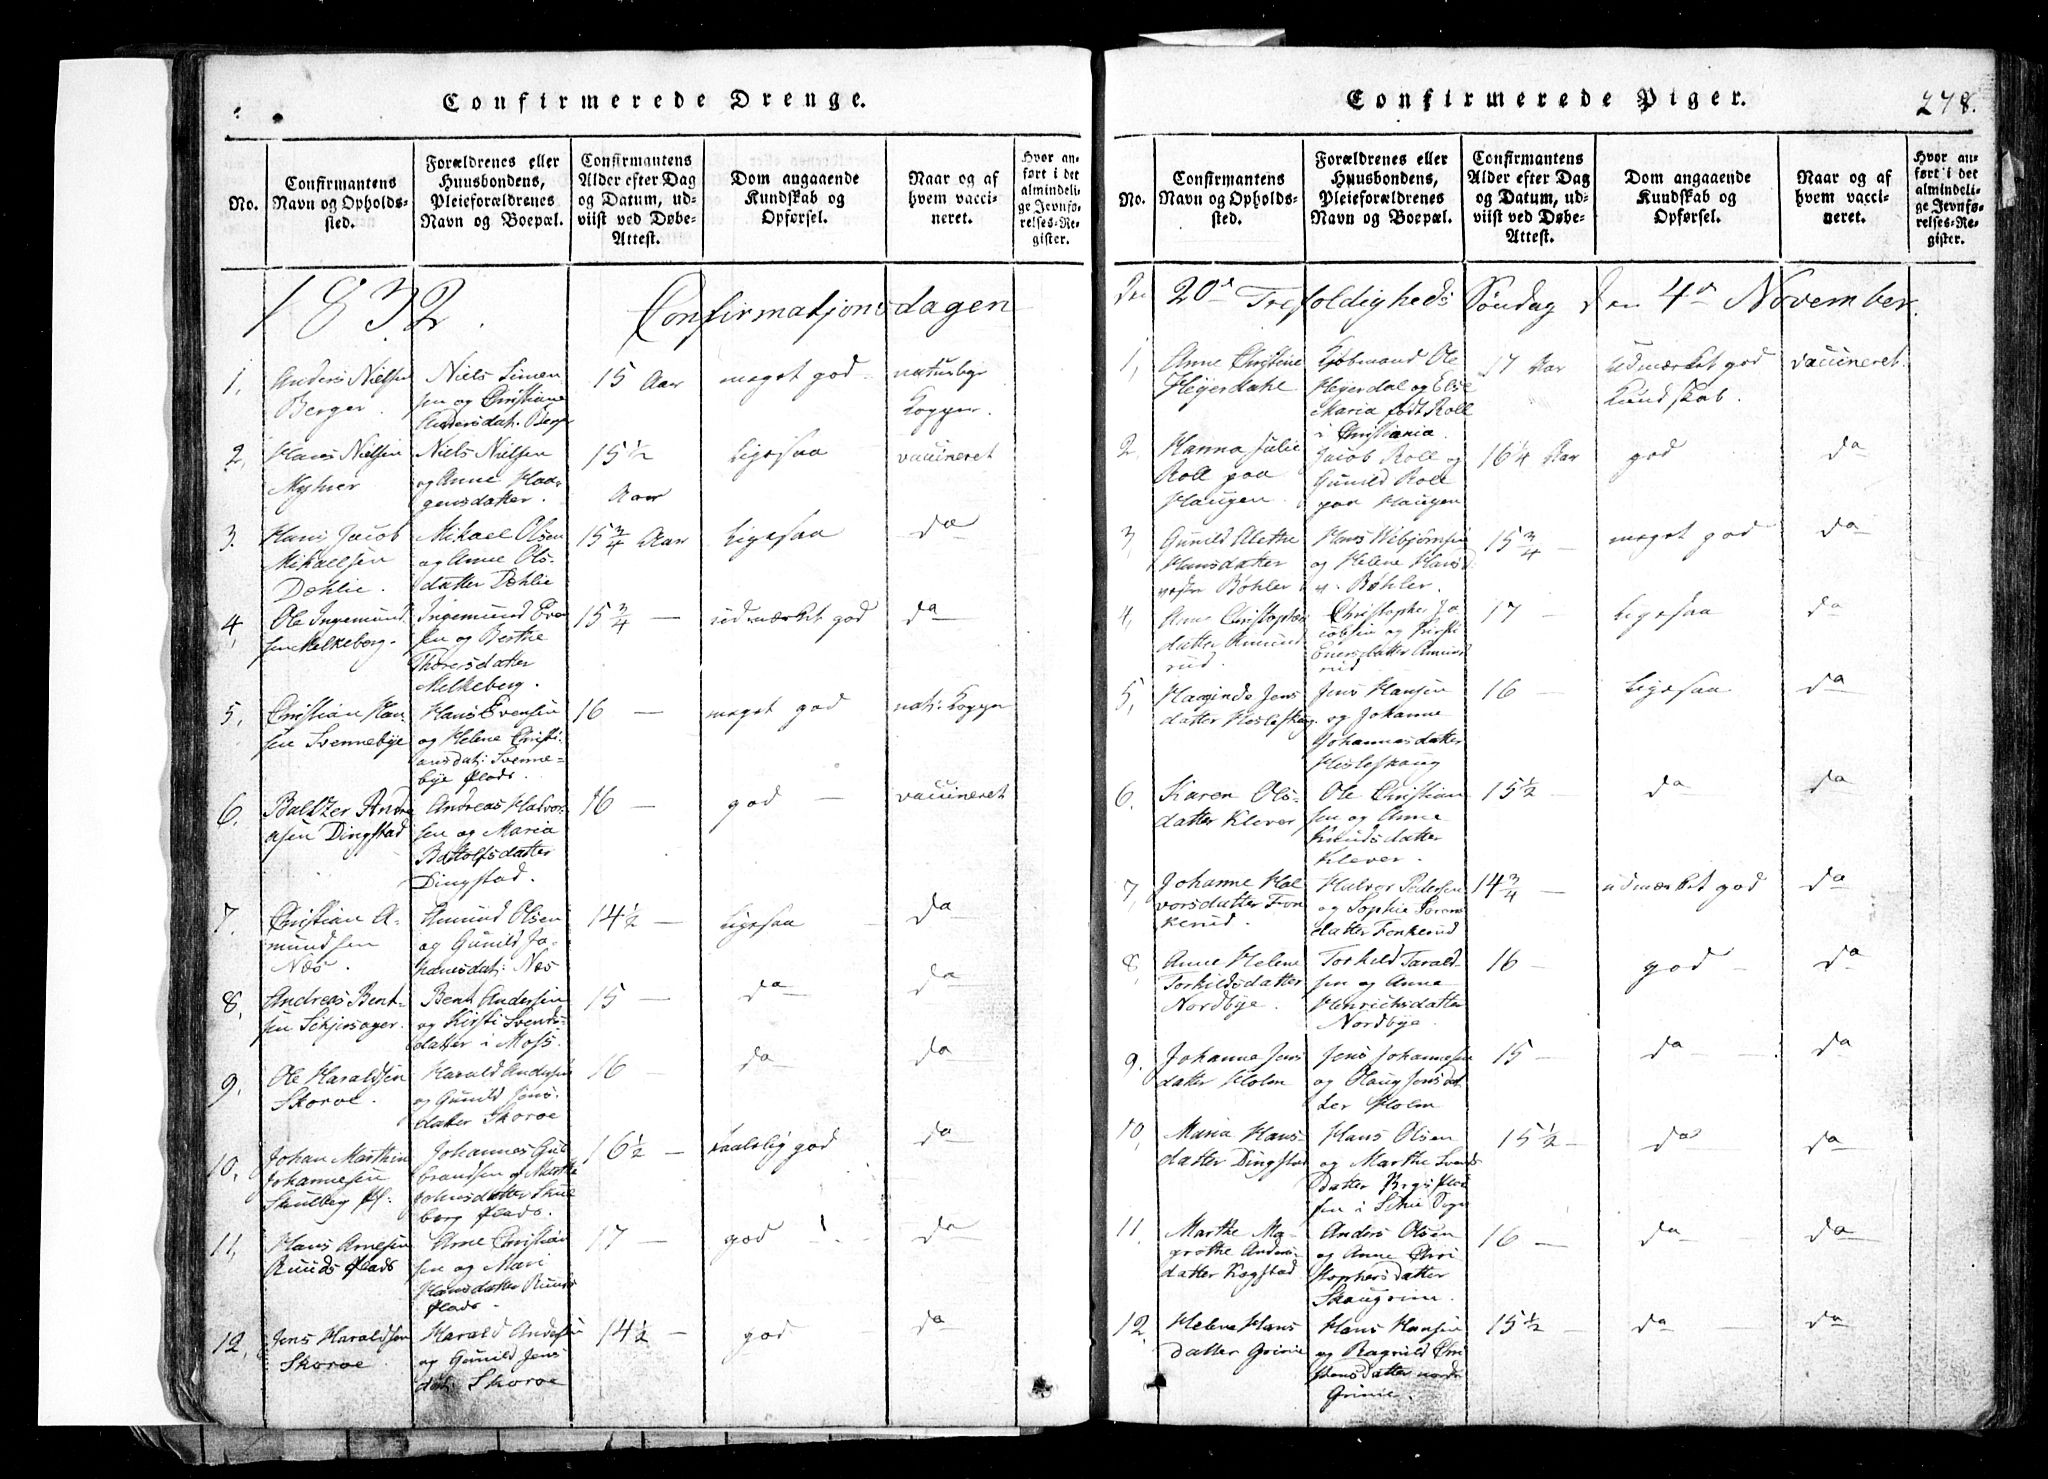 Confirmerede Drenge.
No.
Confirmantens
Navn og Opholds-
sted.
Forældrenes eller
Huusbondens,
Pleieforældrenes
Navn og Boepæl.
Confirmantens
Alder efter Dag
og Datum, ud-
viist ved Døbe-
Attest.
Dom angaaende
Kundskab og
Opførsel.
Naar og af
hvem vacci-
neret.
Hvor an-
ført i det
almindeli-
ge Jevnfø-
relses-Re-
gister.
1832. Confirmatjonsdagen
1,
Anders Nielsen
Berger.
Niels Simen
sen og Christiane
Andersdat. Berger
15 Aar
meget god
naturlige
Kopper.
2,
Hans Nielsen
Myhrer
Niels Nielsen
og Anne Haa-
gensdatter.
15 1/2
Aar
ligesaa
vaccineret
3.
Hans Jacob
Mikaelsen
Dæhlie.
Mikael Olsen
og Anne Ols-
datter Dæhlie
15 3/4 Aar
ligesaa
do
4,
Ole Ingemund
sen Melkeberg.
Ingemund Even
sen og Berthe
Thoresdatter
Melkeberg.
15 3/4 —
udmærket god
do
5,
Christian Han
sen Svennebye
Hans Evensen
og Helene Christi-
ansdat: Svenne-
bye Plads.
16 —
meget god
nat: Kopper
6.
Baltzer Andre
asen Dingstad
Andreas Halvor
sen og Maria
Battolfsdatter
Dingstad.
16 —
god —
vaccineret
7.
Christian A-
mundsen
Næs.
Amund Olsen
og Gunild Jo-
hansdat: Næs
14 1/2 —
ligesaa
do
8,
Andreas Bent-
sen Schjersager.
Bent Andersen
og Kirsti Svends-
datter i Moss.
15 —
do
do
9,
Ole Haraldsen
Skoroe.
Harald Andersen
og Gunild Jens-
datter Skoroe
16 —
do
do
10,
Johan Marthin
Johannesen
Skulberg Pl:
Johannes Gul
brandsen og Marthe
Johnsdatter Skul
berg Plads.
16 1/2 —
taalelig god
do
11,
Hans Arnesen
Ruuds Plads
Arne Christian
sen og Mari
Hansdatter Ruuds
Plads.
17 —
god
do
12,
Jens Haraldsen
Skoroe
Harald Andersen
og Gunild Jens
dat: Skoroe
14 1/2 —
god
do
Confirmerede Piger.
278.
No.
Confirmantens
Navn og Opholds-
sted.
Forældrenes eller
Huusbondens,
Pleieforældrenes
Navn og Boepæl.
Confirmantens
Alder efter Dag
og Datum, ud-
viist ved Døbe-
Attest.
Dom angaaende
Kundskab og
Opførsel.
Naar og af
hvem vacci-
neret.
Hvor an-
ført i det
almindeli-
ge Jevnfø-
relses-Re-
gister.
Den 20de Trefoldigheds Søndag den 4de November.
1,
Anne Christine
Heyerdahl
Kjøbmand Ole
Heyerdal og Else
Maria født Roll
i Christiania.
17 Aar
udmærket god
Kundskab.
vaccineret.
2,
Hanna Julie
Roll paa
Haugen.
Jacob Roll og
Gunild Roll
paa Haugen
16 1/4 Aar
god
do
3,
Gunild Alethe
Hansdatter
vestre Bøhler
Hans Webjørnsen
og Helene Hansd
v. Bøhler.
15 3/4 —
meget god
do
4,
Anne Christophers
datter Amund
rud.
Christopher Ja
cobsen og Kirsti
Enersdatter Amund
rud
17 —
ligesaa
do
5,
Jens
datter Hesleskoug.
Jens Hansen
og Johanne
Johannesdatter
Hesleskoug
16 —
ligesaa
do
6.
Karen Ols-
datter Klever
Ole Christian
sen og Anne
Knudsdatter
Klever.
15 1/2 —
do
do
7,
Johanne Hal
vorsdatter Fon
kerud.
Halvor Pedersen
og Sophie Sørens
datter Fonkerud
14 3/4 —
udmærket god
do
8,
Anne Helene
Torkildsdatter
Nordbye.
Torkild Tarald-
sen og Anna
Henrichsdatter
Nordbye.
16 —
god —
do
9.
Johanna Jens
datter Holm
Jens Johannesen
og Olaug Jensdat
ter Holm
15 —
do —
do
10,
Maria Hans-
datter Dingstad
Hans Olsen
og Marthe Svends
datter
sen i
15 1/2 —
do
do
11.
Marthe Ma-
grethe Anders-
datter Kogstad
Anders Olsen
og Anne Chri
stophersdatter
Skougrim.
16 —
do
do
12,
Helene Hans
datter Grinie
Hans Hansen
og Ragnild Chri
stensdatter nordre
Grinie.
15 1/2 —
do
do